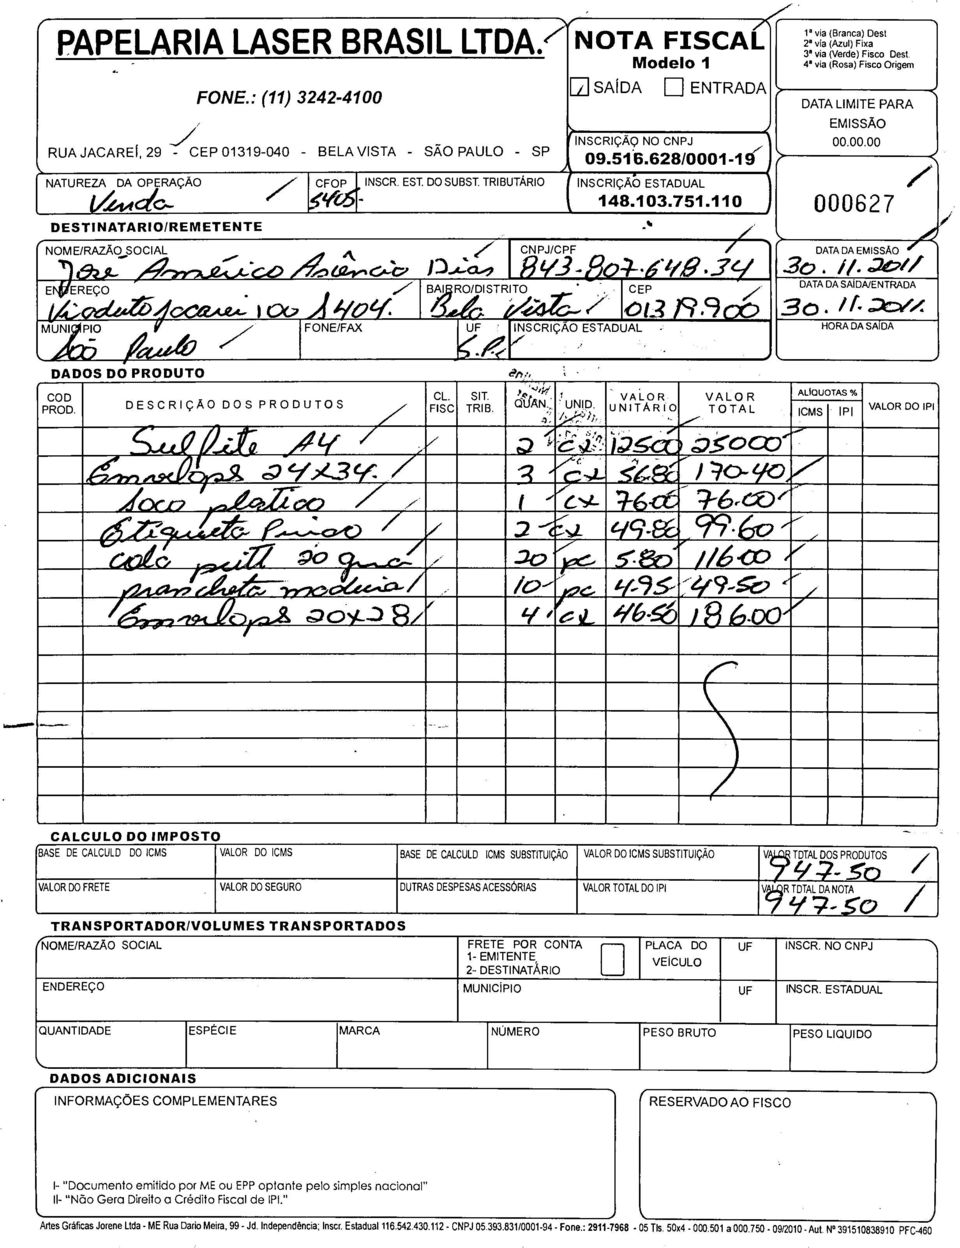 PAPELARIA LASER BRASIL LTDA.
FONE.: (11) 3242-4100
RUA JACAREÍ, 29 - CEP 01319-040 - BELA VISTA - SÃO PAULO - SP
NOTA FISCAL
Modelo 1
SAÍDA ENTRADA
INSCRIÇÃO NO CNPJ
09.516.628/0001-19
1ª via (Branca) Dest
2ª via (Azul) Fixa
3ª via (Verde) Fisco Dest.
4ª via (Rosa) Fisco Origem
DATA LIMITE PARA
EMISSÃO
00.00.00
NATUREZA DA OPERAÇÃO CFOP INSCR. EST. DO SUBST. TRIBUTÁRIO INSCRIÇÃO ESTADUAL
Venda 5405- 148.103.751.110 000627
DESTINATARIO/REMETENTE
NOME/RAZÃO SOCIAL CNPJ/CPF DATA DA EMISSÃO
José Américo Ascêncio Dias 843-807-648.34 30.11.2011
ENDEREÇO BAIRRO/DISTRITO CEP DATA DA SAÍDA/ENTRADA
Viaduto Jacarei 100 S 404. Bela Vista 01319.900 30.11.2011.
MUNICIPIO FONE/FAX UF INSCRIÇÃO ESTADUAL HORA DA SAÍDA
São Paulo S.P.
DADOS DO PRODUTO
COD PROD. DESCRIÇÃO DOS PRODUTOS CL. FISC SIT. TRIB. QUAN. UNID. VALOR UNITÁRIO VALOR TOTAL ALÍQUOTAS % ICMS IPI VALOR DO IPI
Sulfite A4 2 cx 12500 25000
Envelops 24x34. 3 cx 56.80 170-40
Soco platico 1 cx 76-00 76.00
Etiqueta 2 cx 49-80 99.60
cola 20 20 pc 5.80 116-00
prancheta madeira 10- pc 4-95 49-50
Envelops 20x28 4 cx 46.50 186.00
CALCULO DO IMPOSTO
BASE DE CALCULD DO ICMS VALOR DO ICMS BASE DE CALCULD ICMS SUBSTITUIÇÃO VALOR DO ICMS SUBSTITUIÇÃO VALOR TDTAL DOS PRODUTOS
947-50
VALOR DO FRETE VALOR DO SEGURO DUTRAS DESPESAS ACESSÓRIAS VALOR TOTAL DO IPI VALOR TDTAL DA NOTA
947-50
TRANSPORTADOR/VOLUMES TRANSPORTADOS
NOME/RAZÃO SOCIAL FRETE POR CONTA PLACA DO VEÍCULO UF INSCR. NO CNPJ
1- EMITENTE
2- DESTINATÁRIO
ENDEREÇO MUNICÍPIO UF INSCR. ESTADUAL
QUANTIDADE ESPÉCIE MARCA NÚMERO PESO BRUTO PESO LIQUIDO
DADOS ADICIONAIS
INFORMAÇÕES COMPLEMENTARES RESERVADO AO FISCO
I- "Documento emitido por ME ou EPP optante pelo simples nacional"
II- "Não Gera Direito a Crédito Fiscal de IPI."
Artes Gráficas Jorene Ltda - ME Rua Dario Meira, 99 - Jd. Independência; Inscr. Estadual 116.542.430.112 - CNPJ 05.393.831/0001-94 - Fone.: 2911-7968 - 05 Tls. 50x4 - 000.501 a 000.750 - 09/2010 - Aut. Nº 391510838910 PFC-460